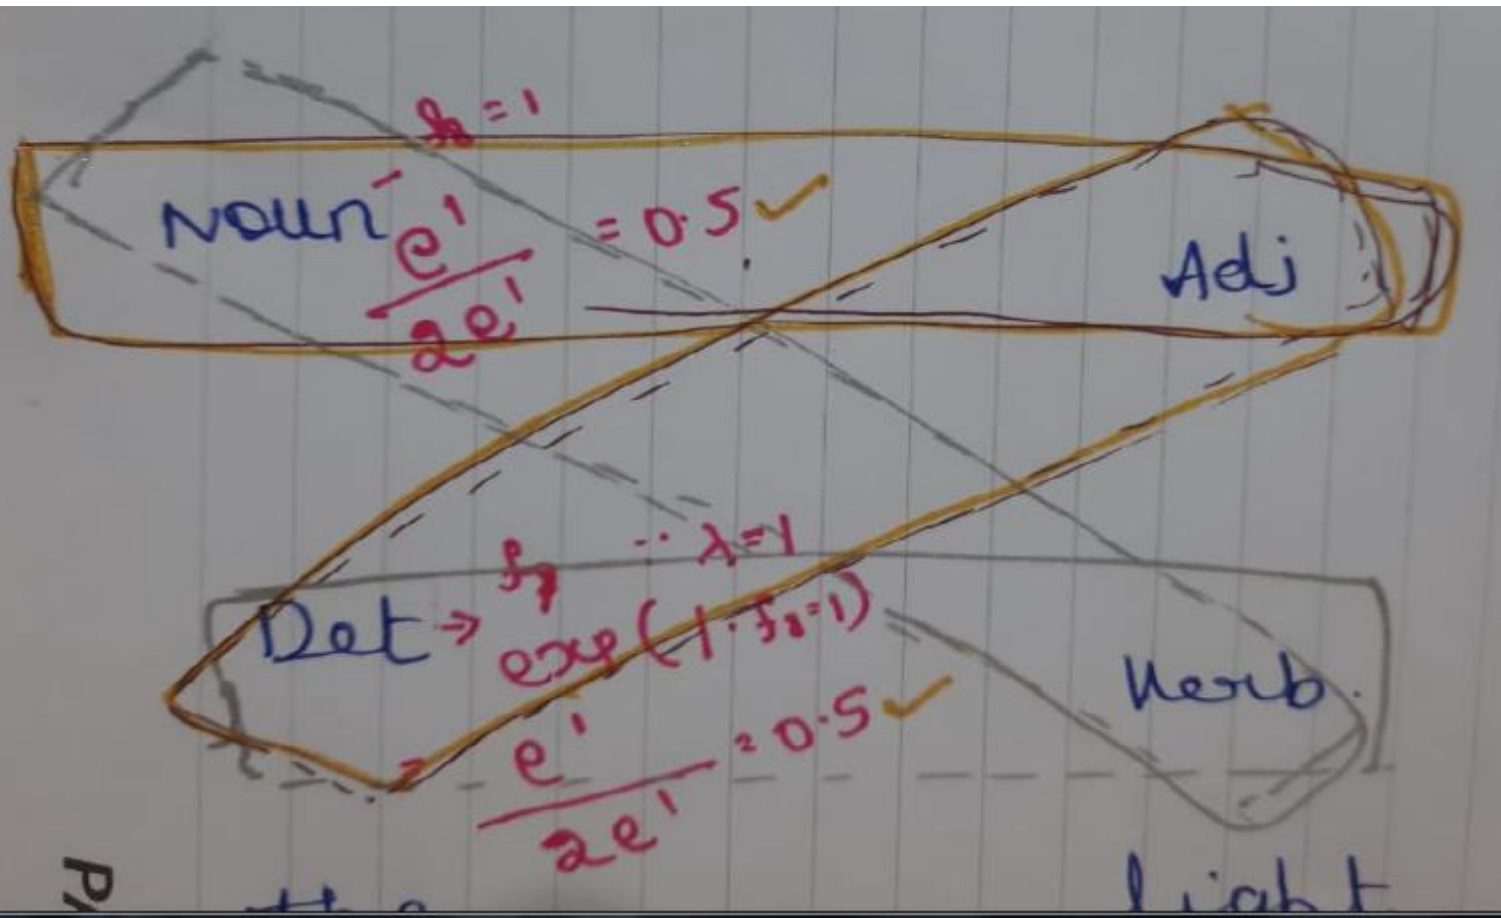 = 1
Noun
e¹ / 2e¹ = 0.5 ✓
Adj
Det → ∵ λ=1
exp(1·f₈=1)
e¹ / 2e¹ = 0.5 ✓
Verb.
the
light